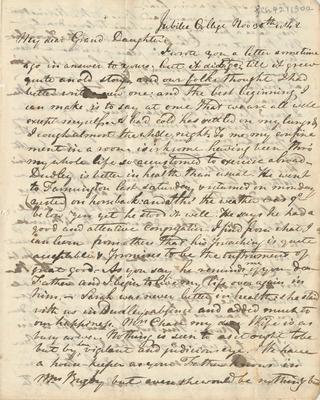 Jubilee College Nov 30th 1842
My dear Grand Daughter
I wrote you a letter sometime
ago in answer to yours, but it till it grew
quite an old story and our folks thought I had
better write new one; and the best beginning I
can make is to say at once that we are all well
except myself. A bad cold has settled on my lungs &
I cough almost the whole night. To me my confine
ment in a room is irksome having been thro'
my whole life so accustomed to exercise abroad
Dudley is better in health than usual. He went
to Farmington last saturday & returned on monday
on horseback and tho' the weather was 9°
below yet he stood it well. He says he had a
good and attentive Congregation. I find from what I
can learn from others that his preaching is quite
acceptable & promises to be the instrument of
great good. As you say he reminds me of your dear
Father and I begin to live my life over again in
him. Sarah was never better in health: she staid
with us in Dudley's absence and added much to
our happiness. Mrs Chase my dear Wife is as
busy as ever. Nothing is seen to as it ought to be
but by her vigilant and judicious eye. We have
a house keeper as your Father knows in
Mrs but even she would be nothing but